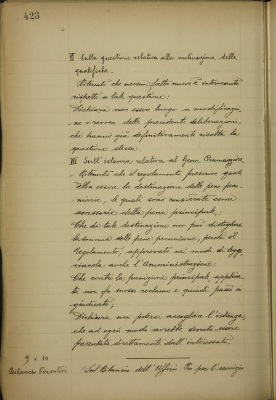 423
II Sulla questione relativa alla motivazione delle
qualifiche.
Ritenuto che nessun fatto nuovo è intervenuto
rispetto a tale questione:
Dichiara non essere luogo a modificazio
ne o revoca delle precedenti deliberazioni,
che hanno già definitivamente risolta la
questione stessa.
III Sull'istanza relativa al Geom.
Ritenuto che il regolamento prescrive quale
abbia essere la destinazione delle pene pecu
niarie, le quali sono considerate come
accessorie della pena principale,
Che da tale destinazione non può distogliersi
la somma delle pene pecuniarie, perché il
Regolamento, approvato nei modi di legge,
vincola anche l'Amministrazione;
Che contro la punizione principale, applica
ta non fu mosso reclamo e quindi passò in
giudicato;
Dichiara non potersi accogliere l'istanza,
che ad ogni modo avrebbe dovuto essere
presentata direttamente dall'interessato.
9. 10
Sul bilancio dell' per l'esercizio